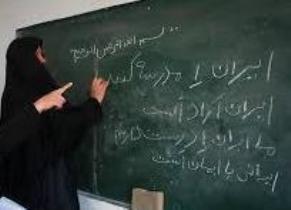 بسم الله الرحمن الرحیم
ایران را مدرسه کنید
ایران آزاد است
ما ایران را دوست داریم
ایمان است